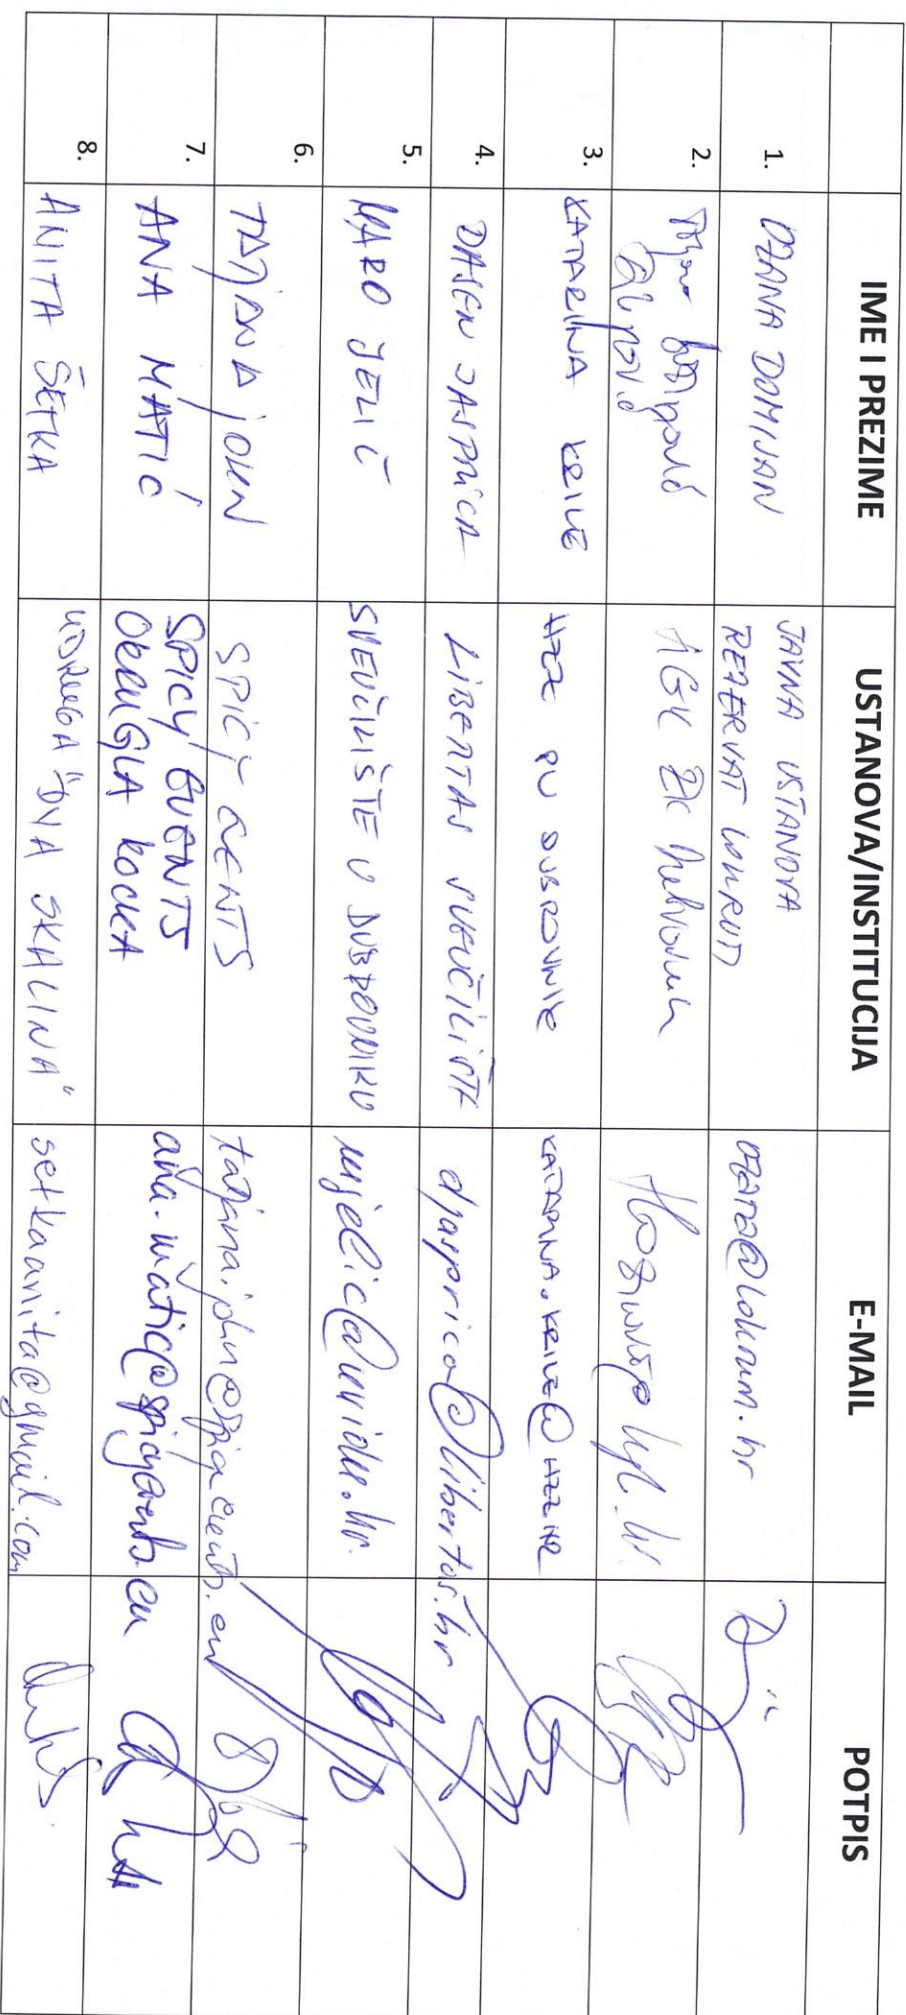 IME I PREZIME USTANOVA/INSTITUCIJA E-MAIL POTPIS
1. DŽANA DOMIJAN JAVNA USTANOVA
REZERVAT LOKRUM @lokrum.hr
2. HGK ŽK
3. KATARINA KRILE HZZ PU DUBROVNIK KATARINA.KRILE@HZZ.HR
4. DAJEN JASPRICA LIBERTAS SVEUČILIŠTE djasprica@libertas.hr
5. MARO JELIĆ SVEUČILIŠTE U DUBROVNIKU mjelic@unidu.hr
6. TATJANA JOHN SPICY EVENTS tatjana.john@spicyevents.eu
7. ANA MATIĆ SPICY EVENTS
OKRUGLA KOCKA ana.matic@spicyevents.eu
8. ANITA ŠETKA UDRUGA "DVA SKALINA" setkaanita@gmail.com